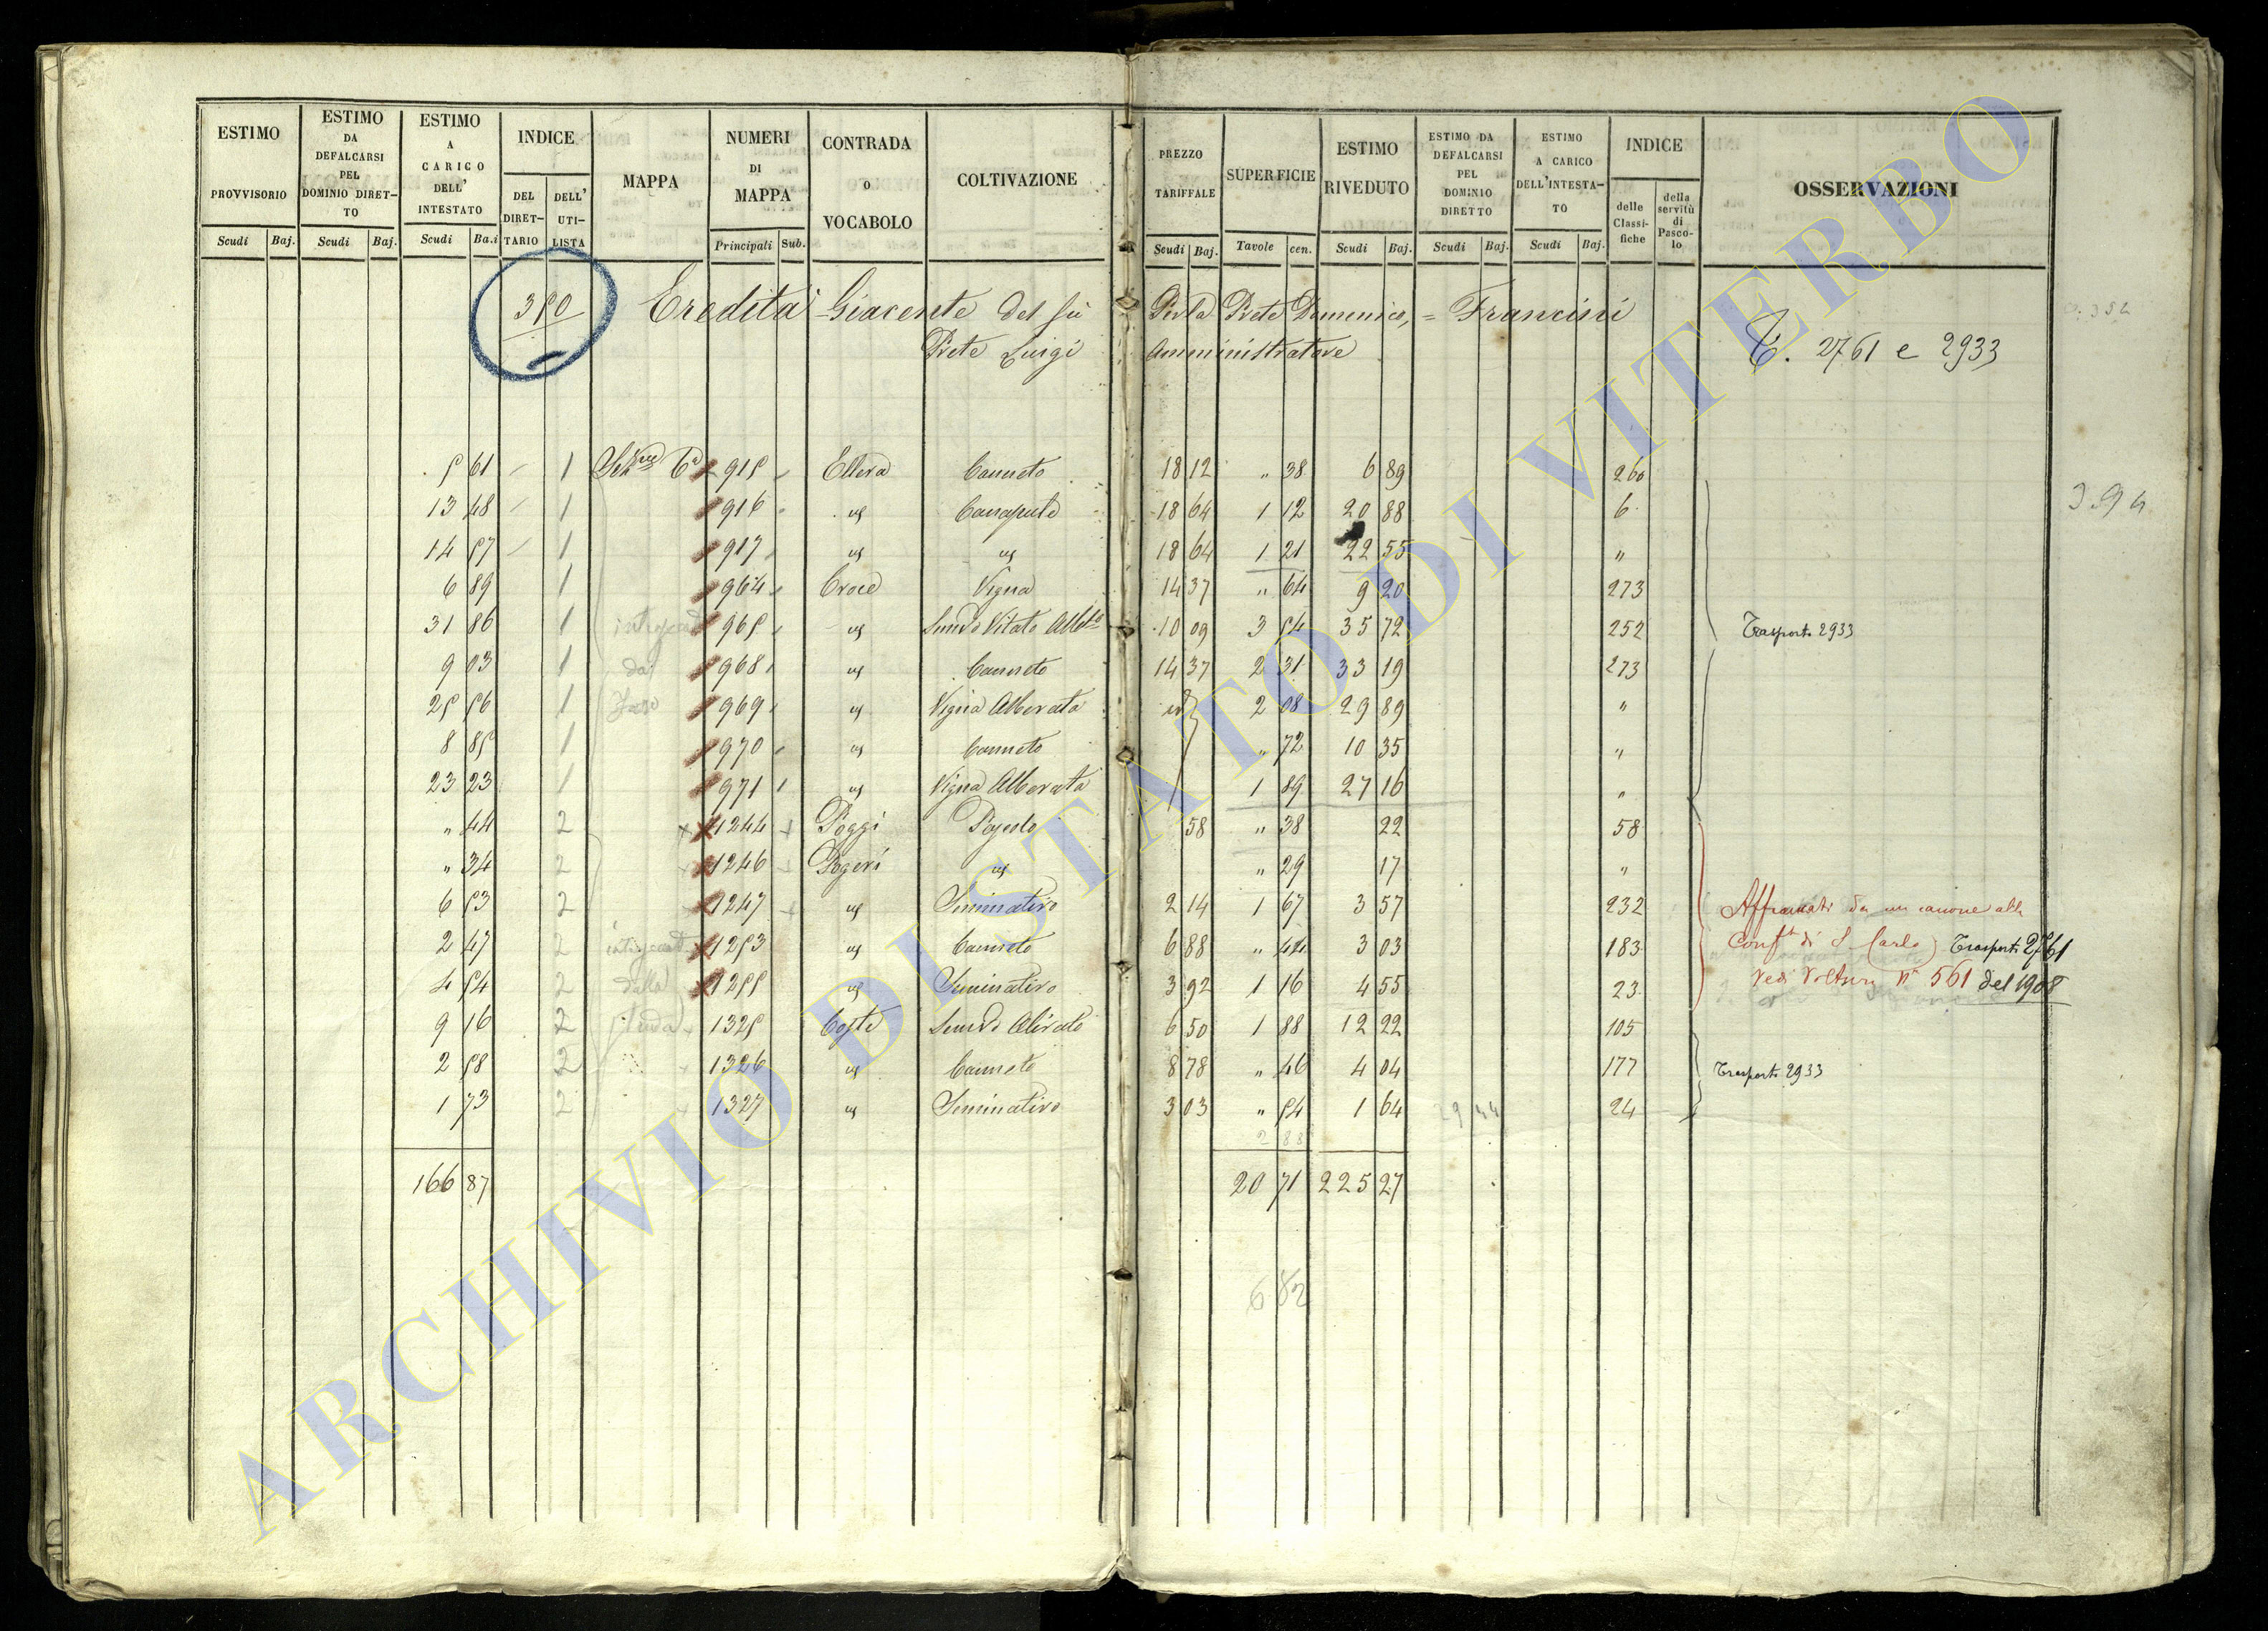 ESTIMO PROVVISORIO Scudi Baj.
ESTIMO DA DEFALCARSI PEL DOMINIO DIRETTO Scudi Baj.
ESTIMO A CARICO DELL' INTESTATO Scudi Ba.i
INDICE DEL DIRETTARIO DELL' UTILISTA
MAPPA
NUMERI DI MAPPA Principali Sub.
CONTRADA O VOCABOLO
COLTIVAZIONE
PREZZO TARIFFALE Scudi Baj.
SUPERFICIE Tavole cen.
ESTIMO RIVEDUTO Scudi Baj.
ESTIMO DA DEFALCARSI PEL DOMINIO DIRETTO Scudi Baj.
ESTIMO A CARICO DELL'INTESTATO Scudi Baj.
INDICE delle Classifiche della servitù di Pascolo
OSSERVAZIONI
350 Eredità Giacente del fù Prete Domenico, = Francini
Prete Luigi Amministratore T. 2761 e 2933
5 61 1 915 Ellera Canneto 18 12 " 38 6 89 260
13 48 1 916 id Canapule 18 64 1 12 20 88 6
14 57 1 917 id id 18 64 1 21 22 55 "
6 89 1 964 Croce Vigna 14 37 " 64 9 20 273
31 86 1 965 id Semvo Vitato Albto 10 09 3 54 35 72 252 Trasporto 2933
9 03 1 968 id Canneto 14 37 2 31 33 19 273
25 56 1 969 id Vigna Alberata id 2 08 29 89 "
8 85 1 970 id Canneto " 72 10 35 "
23 23 1 971 id Vigna Alberata 1 89 27 16 "
" 44 2 1244 Poggi Pascolo 58 " 38 22 58
" 34 2 1246 Pogeri id " 29 17 "
6 53 2 1247 id Seminativo 2 14 1 67 3 57 232 Affrancati da un canone alla
2 47 2 1253 id Canneto 6 88 " 44 3 03 183 Conft di S. Carlo) Trasporto 2761
4 54 2 1255 id Seminativo 3 92 1 16 4 55 23 Vedi Voltura n° 561 del 1908
9 16 2 1325 Coste Semvo Olivato 6 50 1 88 12 22 105
2 58 2 1326 id Canneto 8 78 " 46 4 04 177 Trasporto 2933
1 73 2 1327 id Seminativo 3 03 " 54 1 64 24
166 87 20 71 225 27
6 82
394
ARCHIVIO DI STATO DI VITERBO